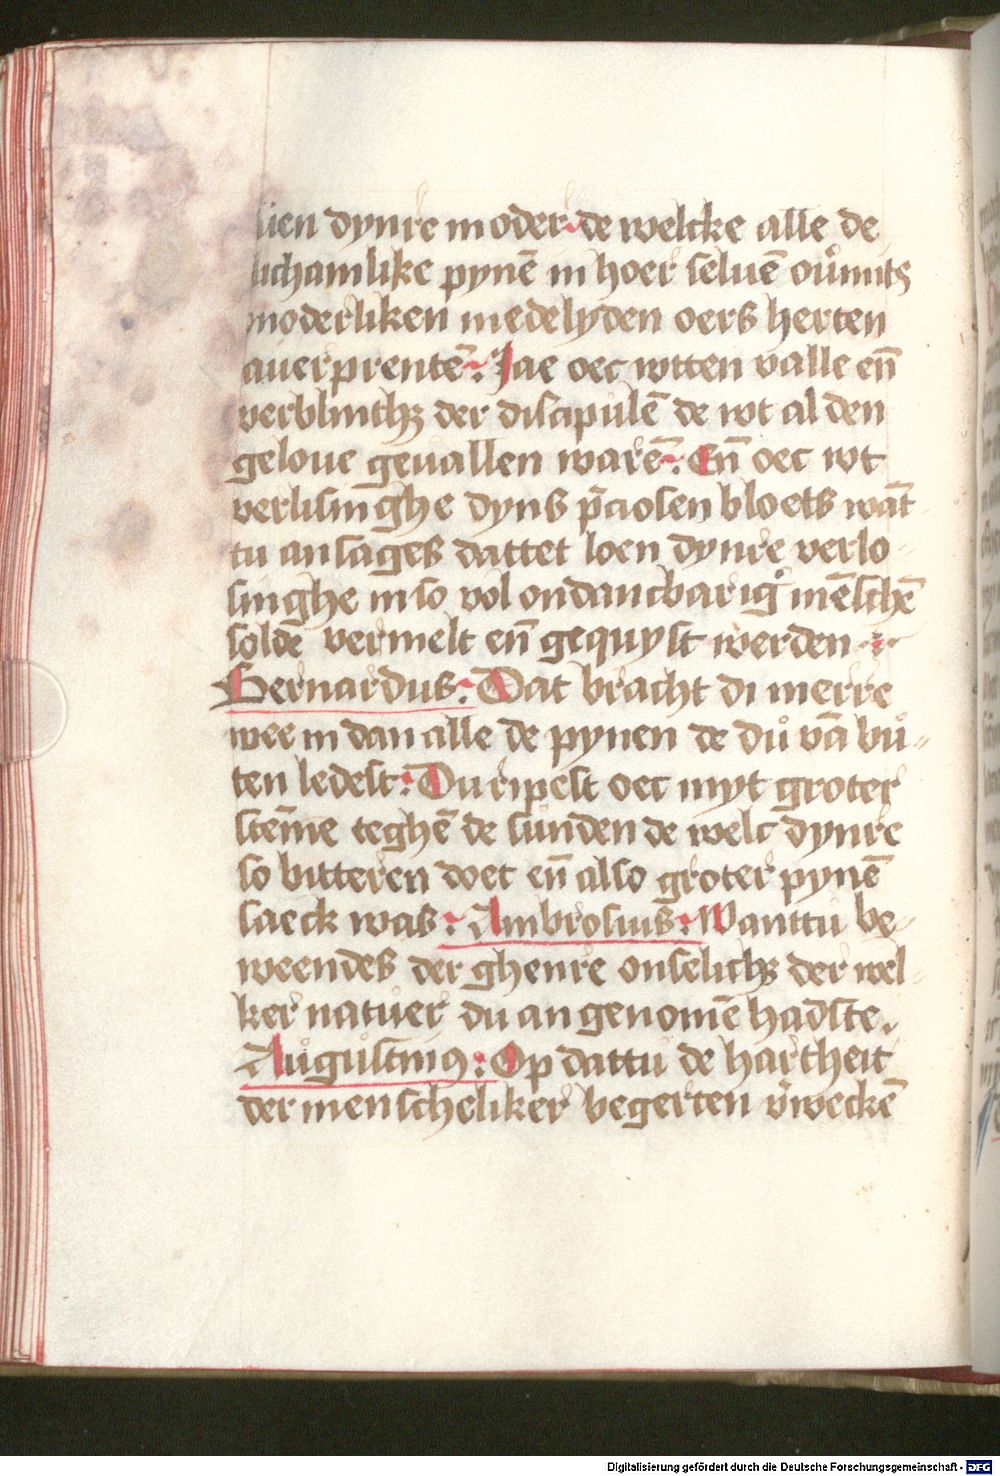 lien dynre moder de welcke alle de
lichamlike pynē in hoer seluē oůmits
moderliken medelyden oers herten
auerprentē. Jae oec wtten valle en̄
verblinthꝫ der discipulē de wt al den
geloue geuallen warē. En̄ oec wt
verlisinghe dyns p̄ciosen bloets wāt
tu ansages dattet loen dynre verlo-
singhe in so vol ondancbariğ mēschē
soldē vermelt en̄ gequyst werden
Bernardus: Dat bracht di merre
wee in dan alle de pynen de dů vā bů-
ten ledest: Du ripest oec myt groter
stēme teghē de sunden de welc dynre
so bitteren doet en̄ also groter pynē
saeck was: Ambrosius: Wanttu be-
weendes der ghenre onselichꝫ der wel-
ker natuer du angenomē hadste.
Augustinꝰ: Op dattu de hartheit
der menscheliker begerten v̄weckē
Digitalisierung gefördert durch die Deutsche Forschungsgemeinschaft - DFG